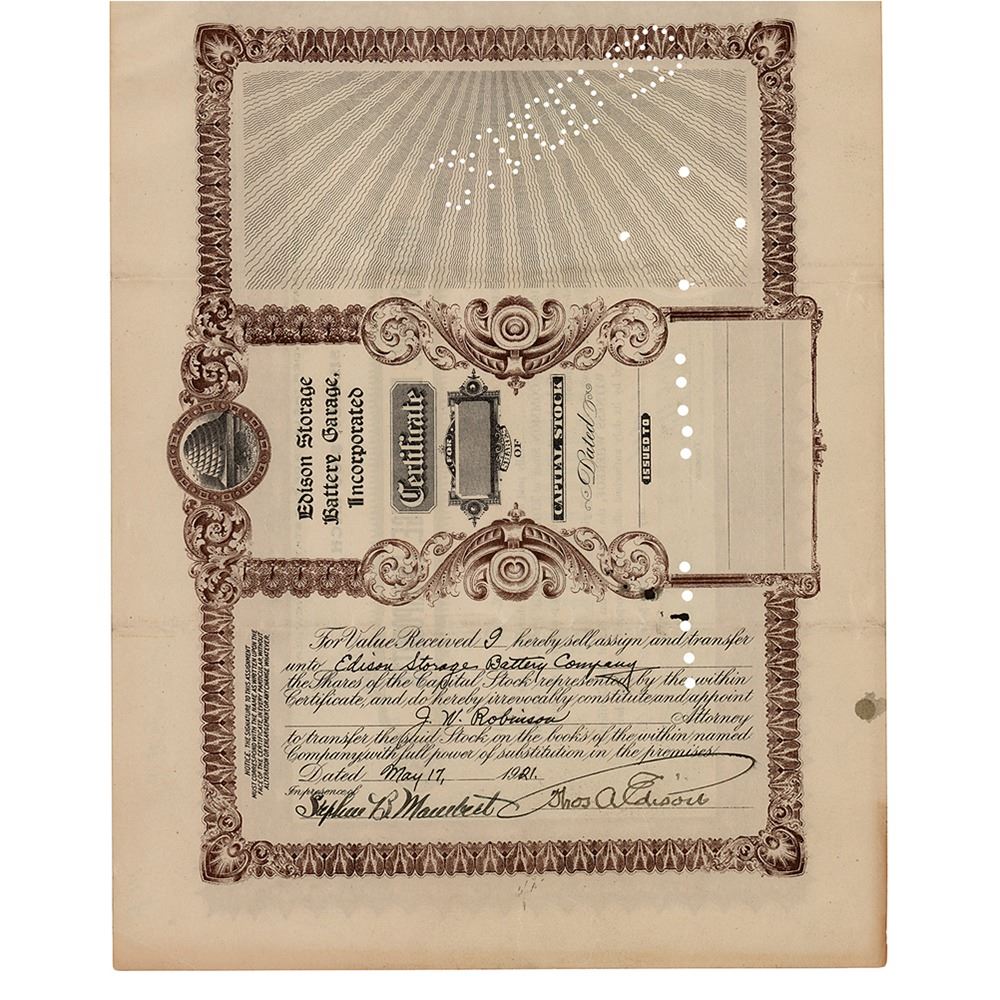 Edison Storage
Battery Garage,
Incorporated
Certificate
FOR
SHARES
OF
CAPITAL STOCK
Dated
ISSUED TO
NOTICE. THE SIGNATURE TO THIS ASSIGNMENT
MUST CORRESPOND WITH THE NAME AS WRITTEN UPON THE
FACE OF THE CERTIFICATE, IN EVERY PARTICULAR, WITHOUT
ALTERATION OR ENLARGEMENT OR ANY CHANGE WHATEVER.
For Value Received I hereby sell, assign and transfer
unto Edison Storage Battery Company
the Shares of the Capital Stock represented by the within
Certificate, and do hereby irrevocably constitute and appoint
J. W. Robinson Attorney
to transfer the said Stock on the books of the within named
Company with full power of substitution in the premises.
Dated May 17, 1921.
In presence of
Thos A Edison